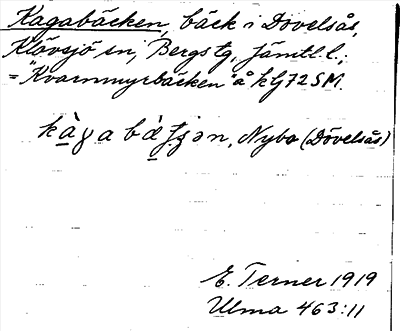 Kagabäcken, bäck i Dövelsås,
Klövsjö sn, Bergs tg, Jämtl. l.;
= "Kvarnmyrbäcken" å kG72SM.
Nybo (Dövelsås)
E. Terner 1919
Ulma 463:11